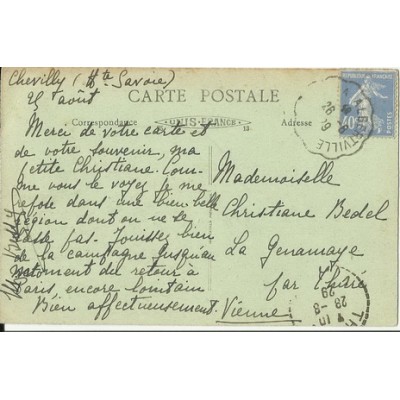 Chevilly (Hte Savoie)
25 août
CARTE POSTALE
Correspondance
TOUS-FRANCE
Adresse
13.
RÉPUBLIQUE FRANÇAISE
40c
POSTES
ALBERTVILLE
26 - 8
29
Merci de votre carte et
de votre souvenir, ma
petite Christiane. Com-
me vous le voyez je me
repose dans une bien belle
région dont on ne se
lasse pas. Jouissez bien
de la campagne jusqu'au
moment du retour à
Paris, encore lointain
Bien affectueusement.
Mademoiselle
Christiane Bedel
La Genamaye
par Thuré
Vienne
28 - 8
29